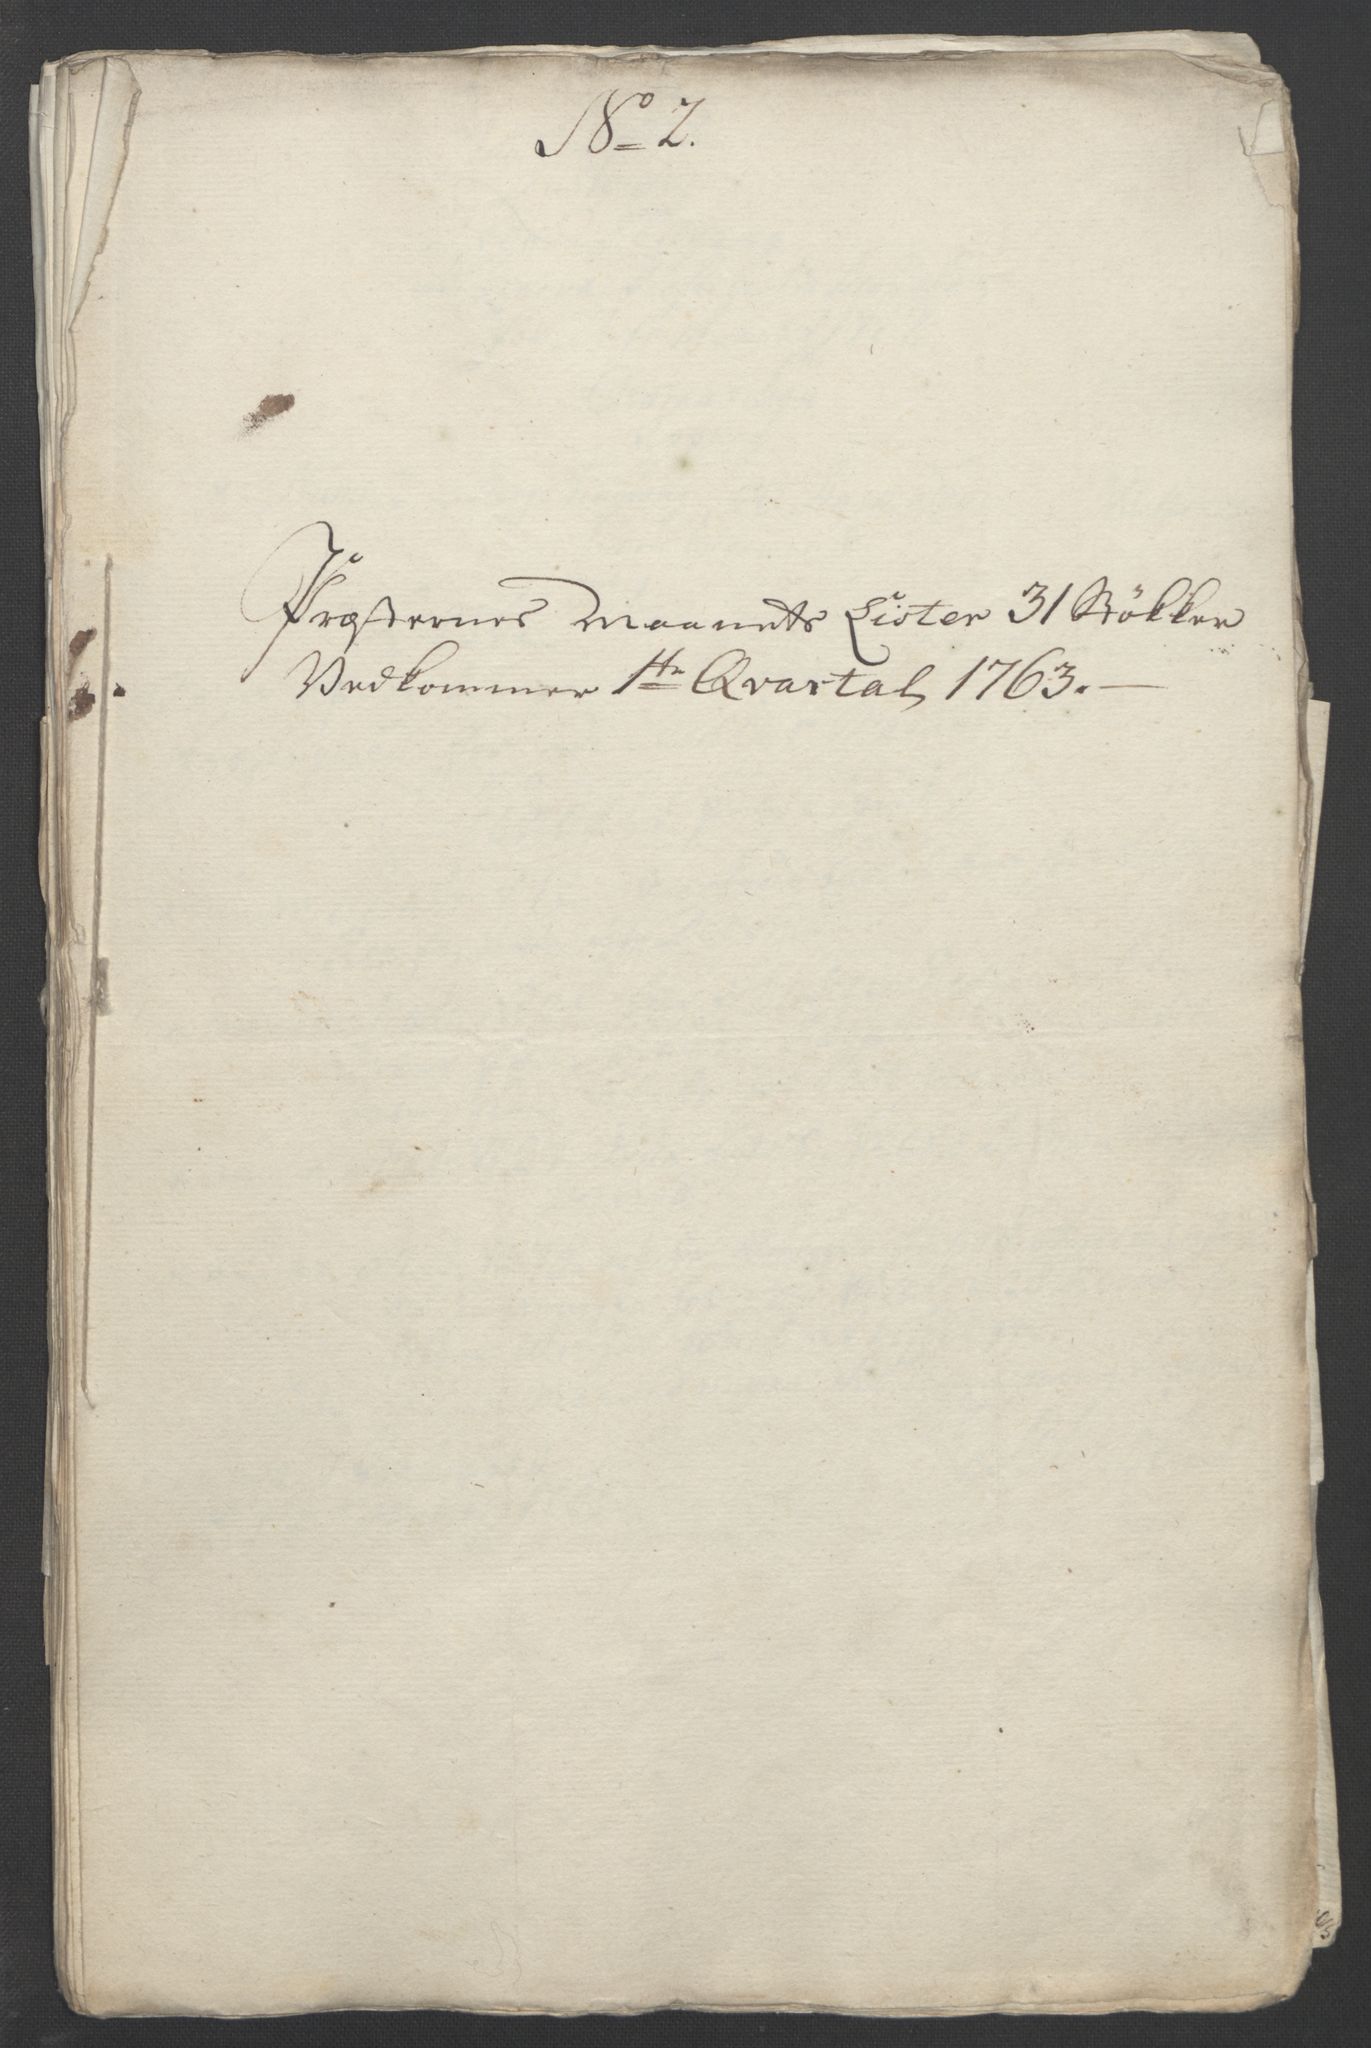 No 2.
Præsternes Maanets Lister 31 Stökker
Vedkommer 1ste Qvartal 1763. —